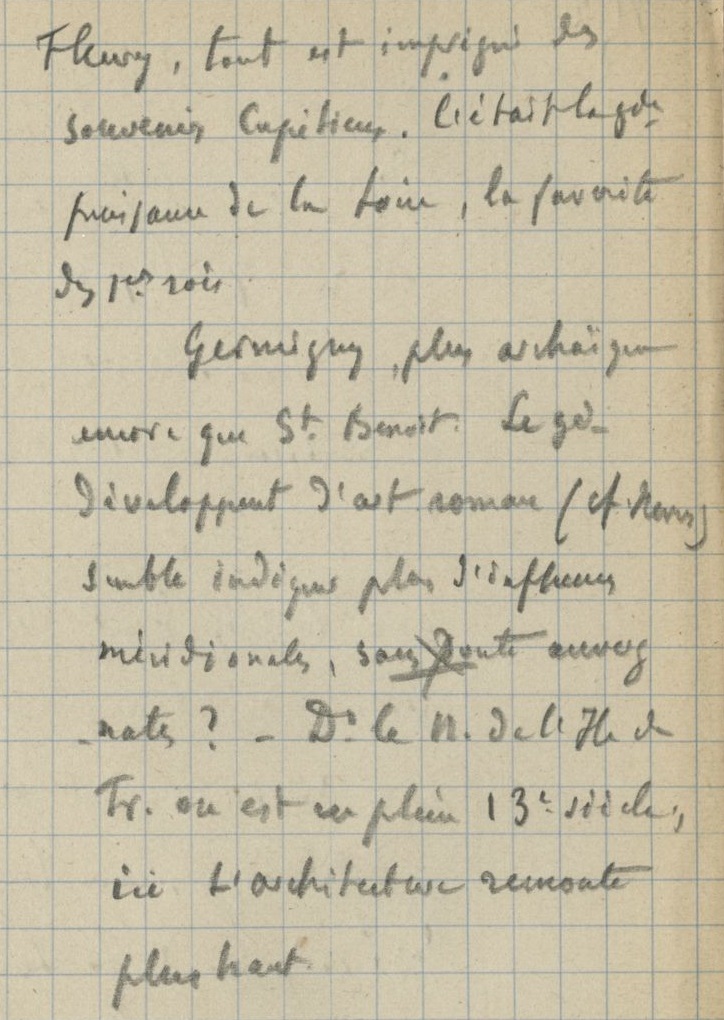 Fleury, tout est imprégné des
souvenirs Capétiens. C'était la gde
puissance de la Loire, la favorite
des 1ers rois
Germigny, plus archaïque
encore que St. Benoît. Le gd
développent d'art roman (cf.
semble indiquer plus d'influences
méridionales, sans doute auverg
-nates ? – Ds le N. de l'Ile de
Fr. on est en plein 13e siècle,
ici l'architecture remonte
plus haut